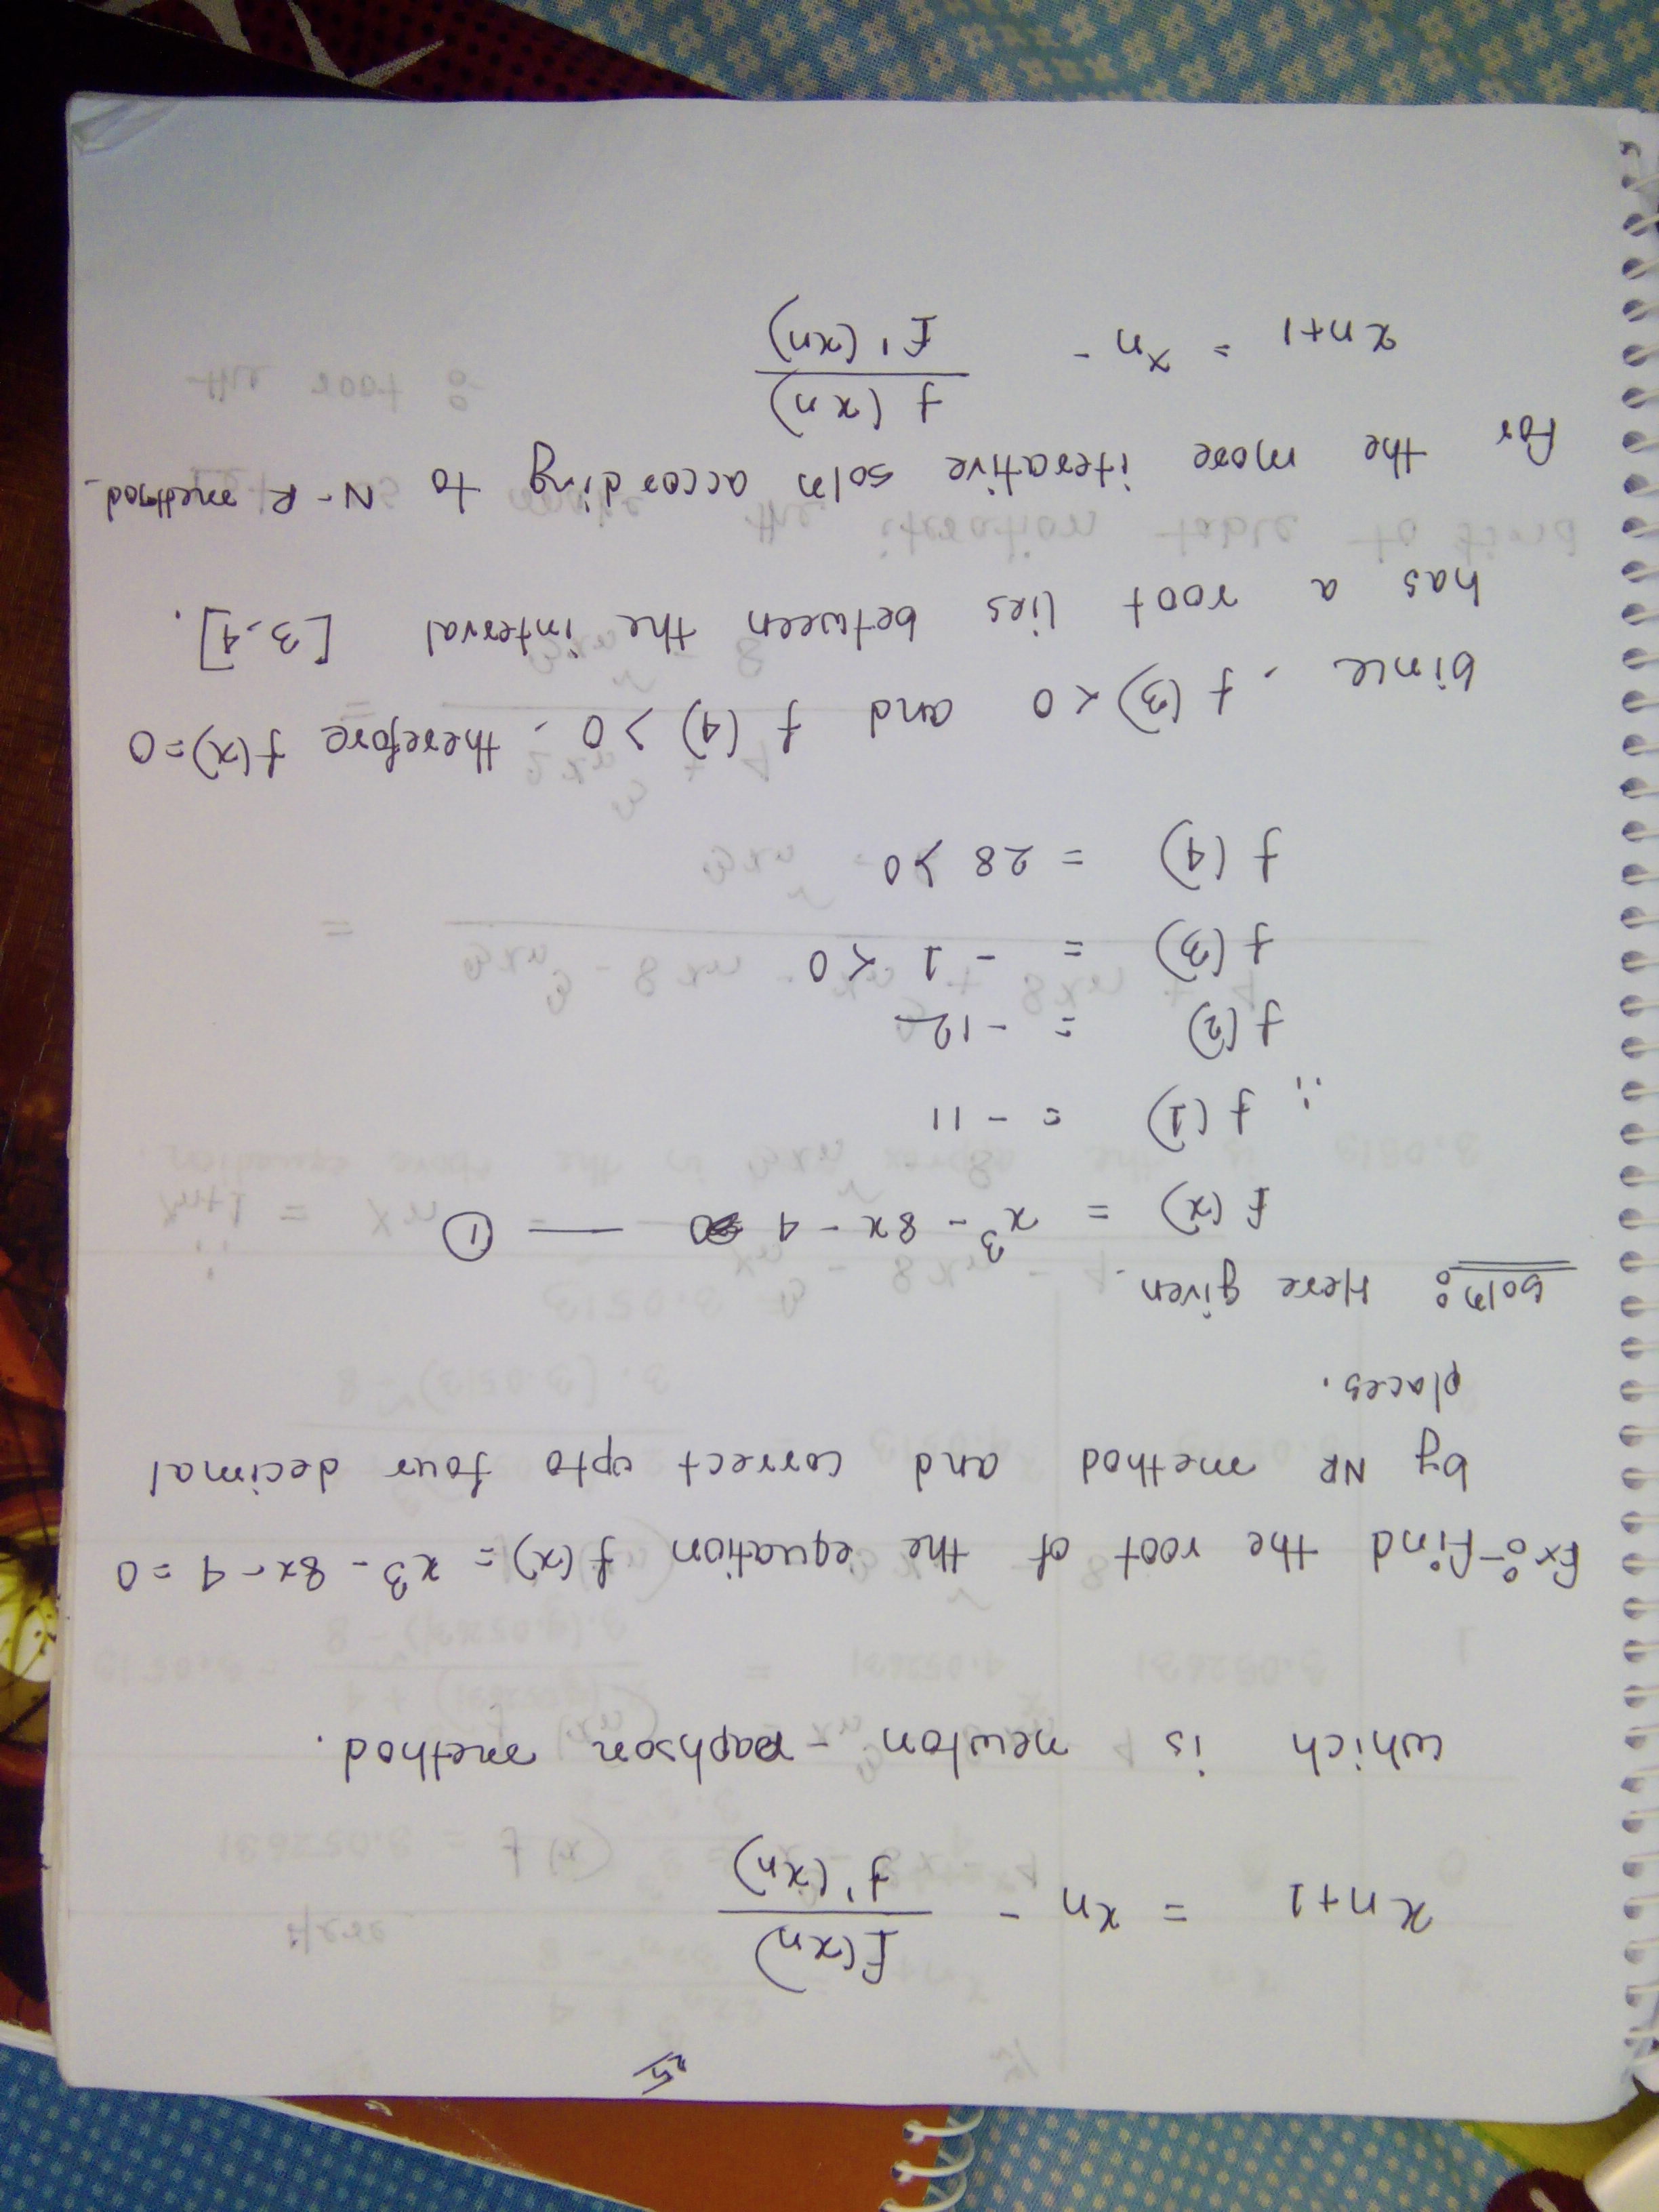 25
x_{n+1} = x_n - \frac{f(x_n)}{f'(x_n)}
which is newton - raphson method.
Ex:- find the root of the equation f(x) = x^3 - 8x - 4 = 0
by NR method and correct upto four decimal
places.
Soln: Here given.
f(x) = x^3 - 8x - 4 — ①
∴ f(1) = -11
f(2) = -12
f(3) = -1 < 0
f(4) = 28 > 0
Since, f(3) < 0 and f(4) > 0, therefore f(x) = 0
has a root lies between the interval [3,4].
For the more iterative soln according to N-R method.
x_{n+1} = x_n - \frac{f(x_n)}{f'(x_n)}